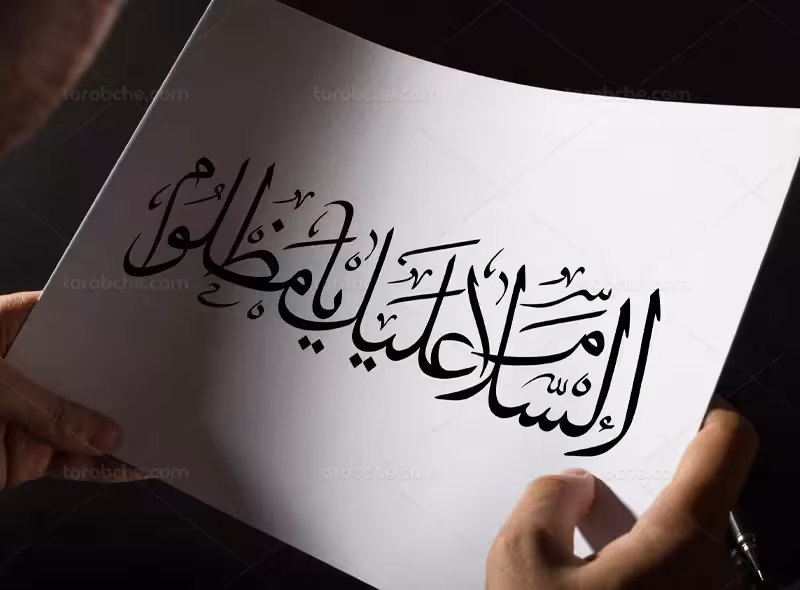 السلام علیک یا مظلوم
torobche.com torobche.com torobche.com
torobche.com torobche.com torobche.com
torobche.com torobche.com torobche.com